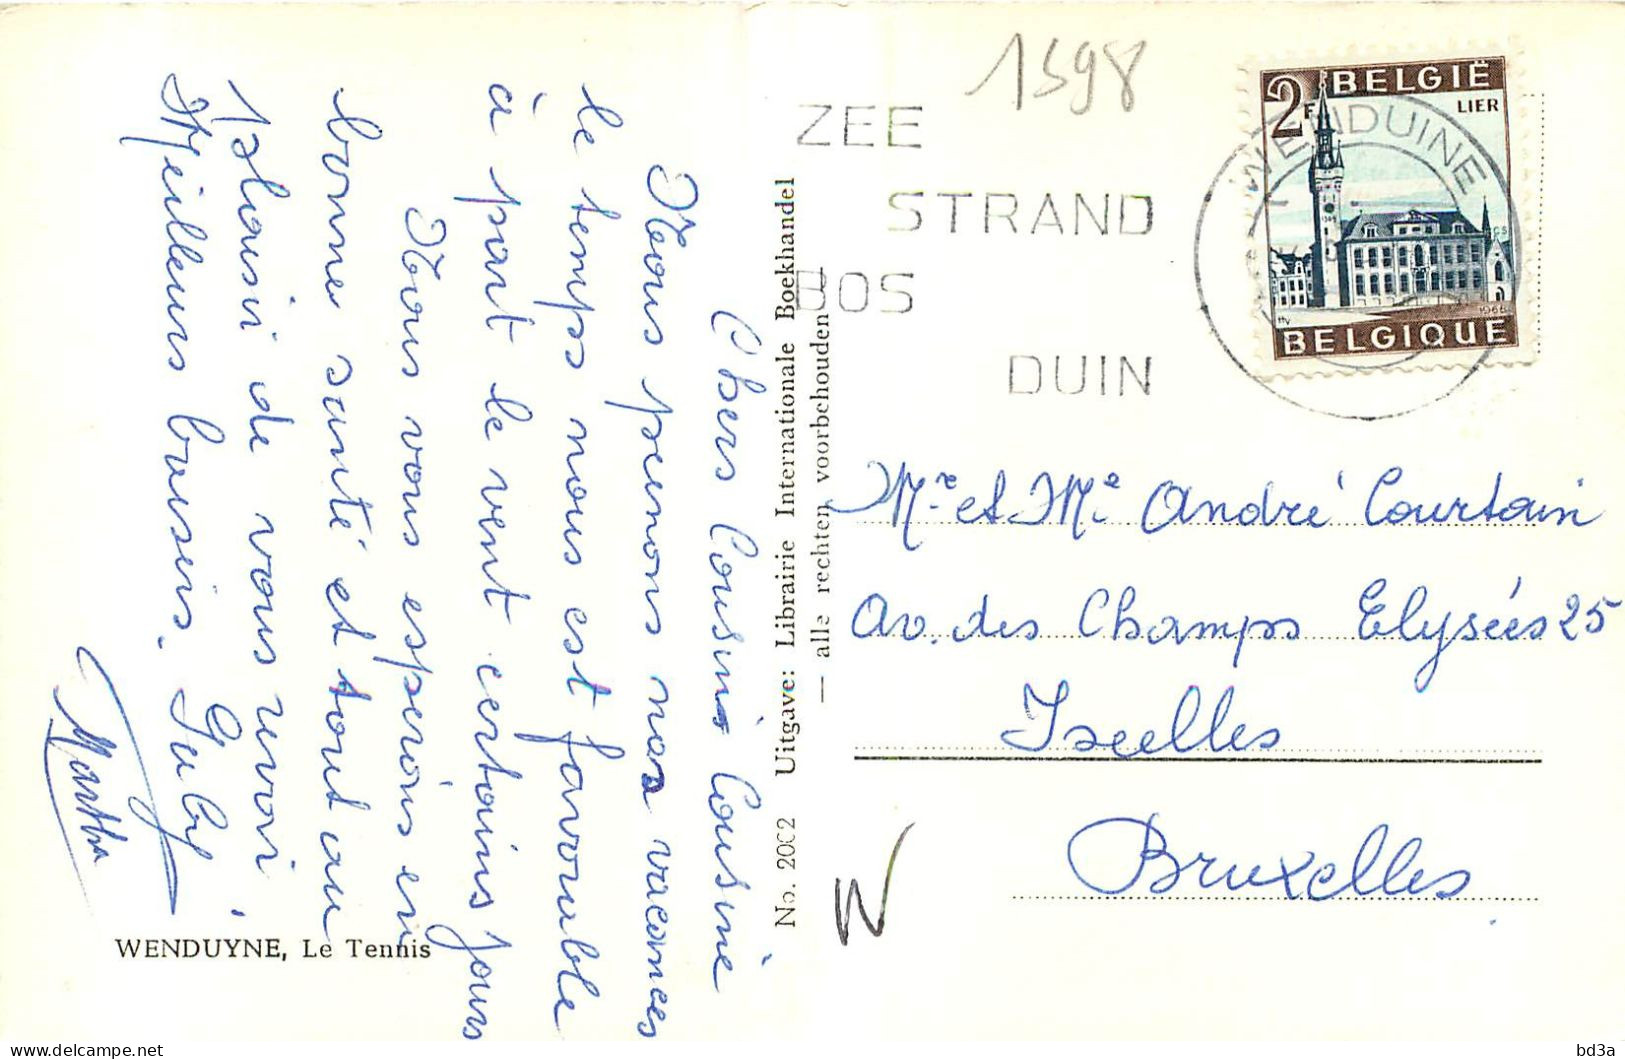 Chers Cousins Cousine
Nous prenons nos vacances
le temps nous est favorable
à part le vent certains jours
Nous vous esperons en
bonne santé et tout au
plaisir de vous revoir
Meilleurs baisers.
Martha
WENDUYNE, Le Tennis
No. 2002 Uitgave: Librairie Internationale Boekhandel
— alle rechten voorbehouden —
1398
ZEE
STRAND
BOS
DUIN
WENDUINE
2F BELGIË
LIER
1966
BELGIQUE
Mr et Me André Courtain
Av. des Champs Elysées 25
Ixelles
Bruxelles
W
delcampe.net
bd3a